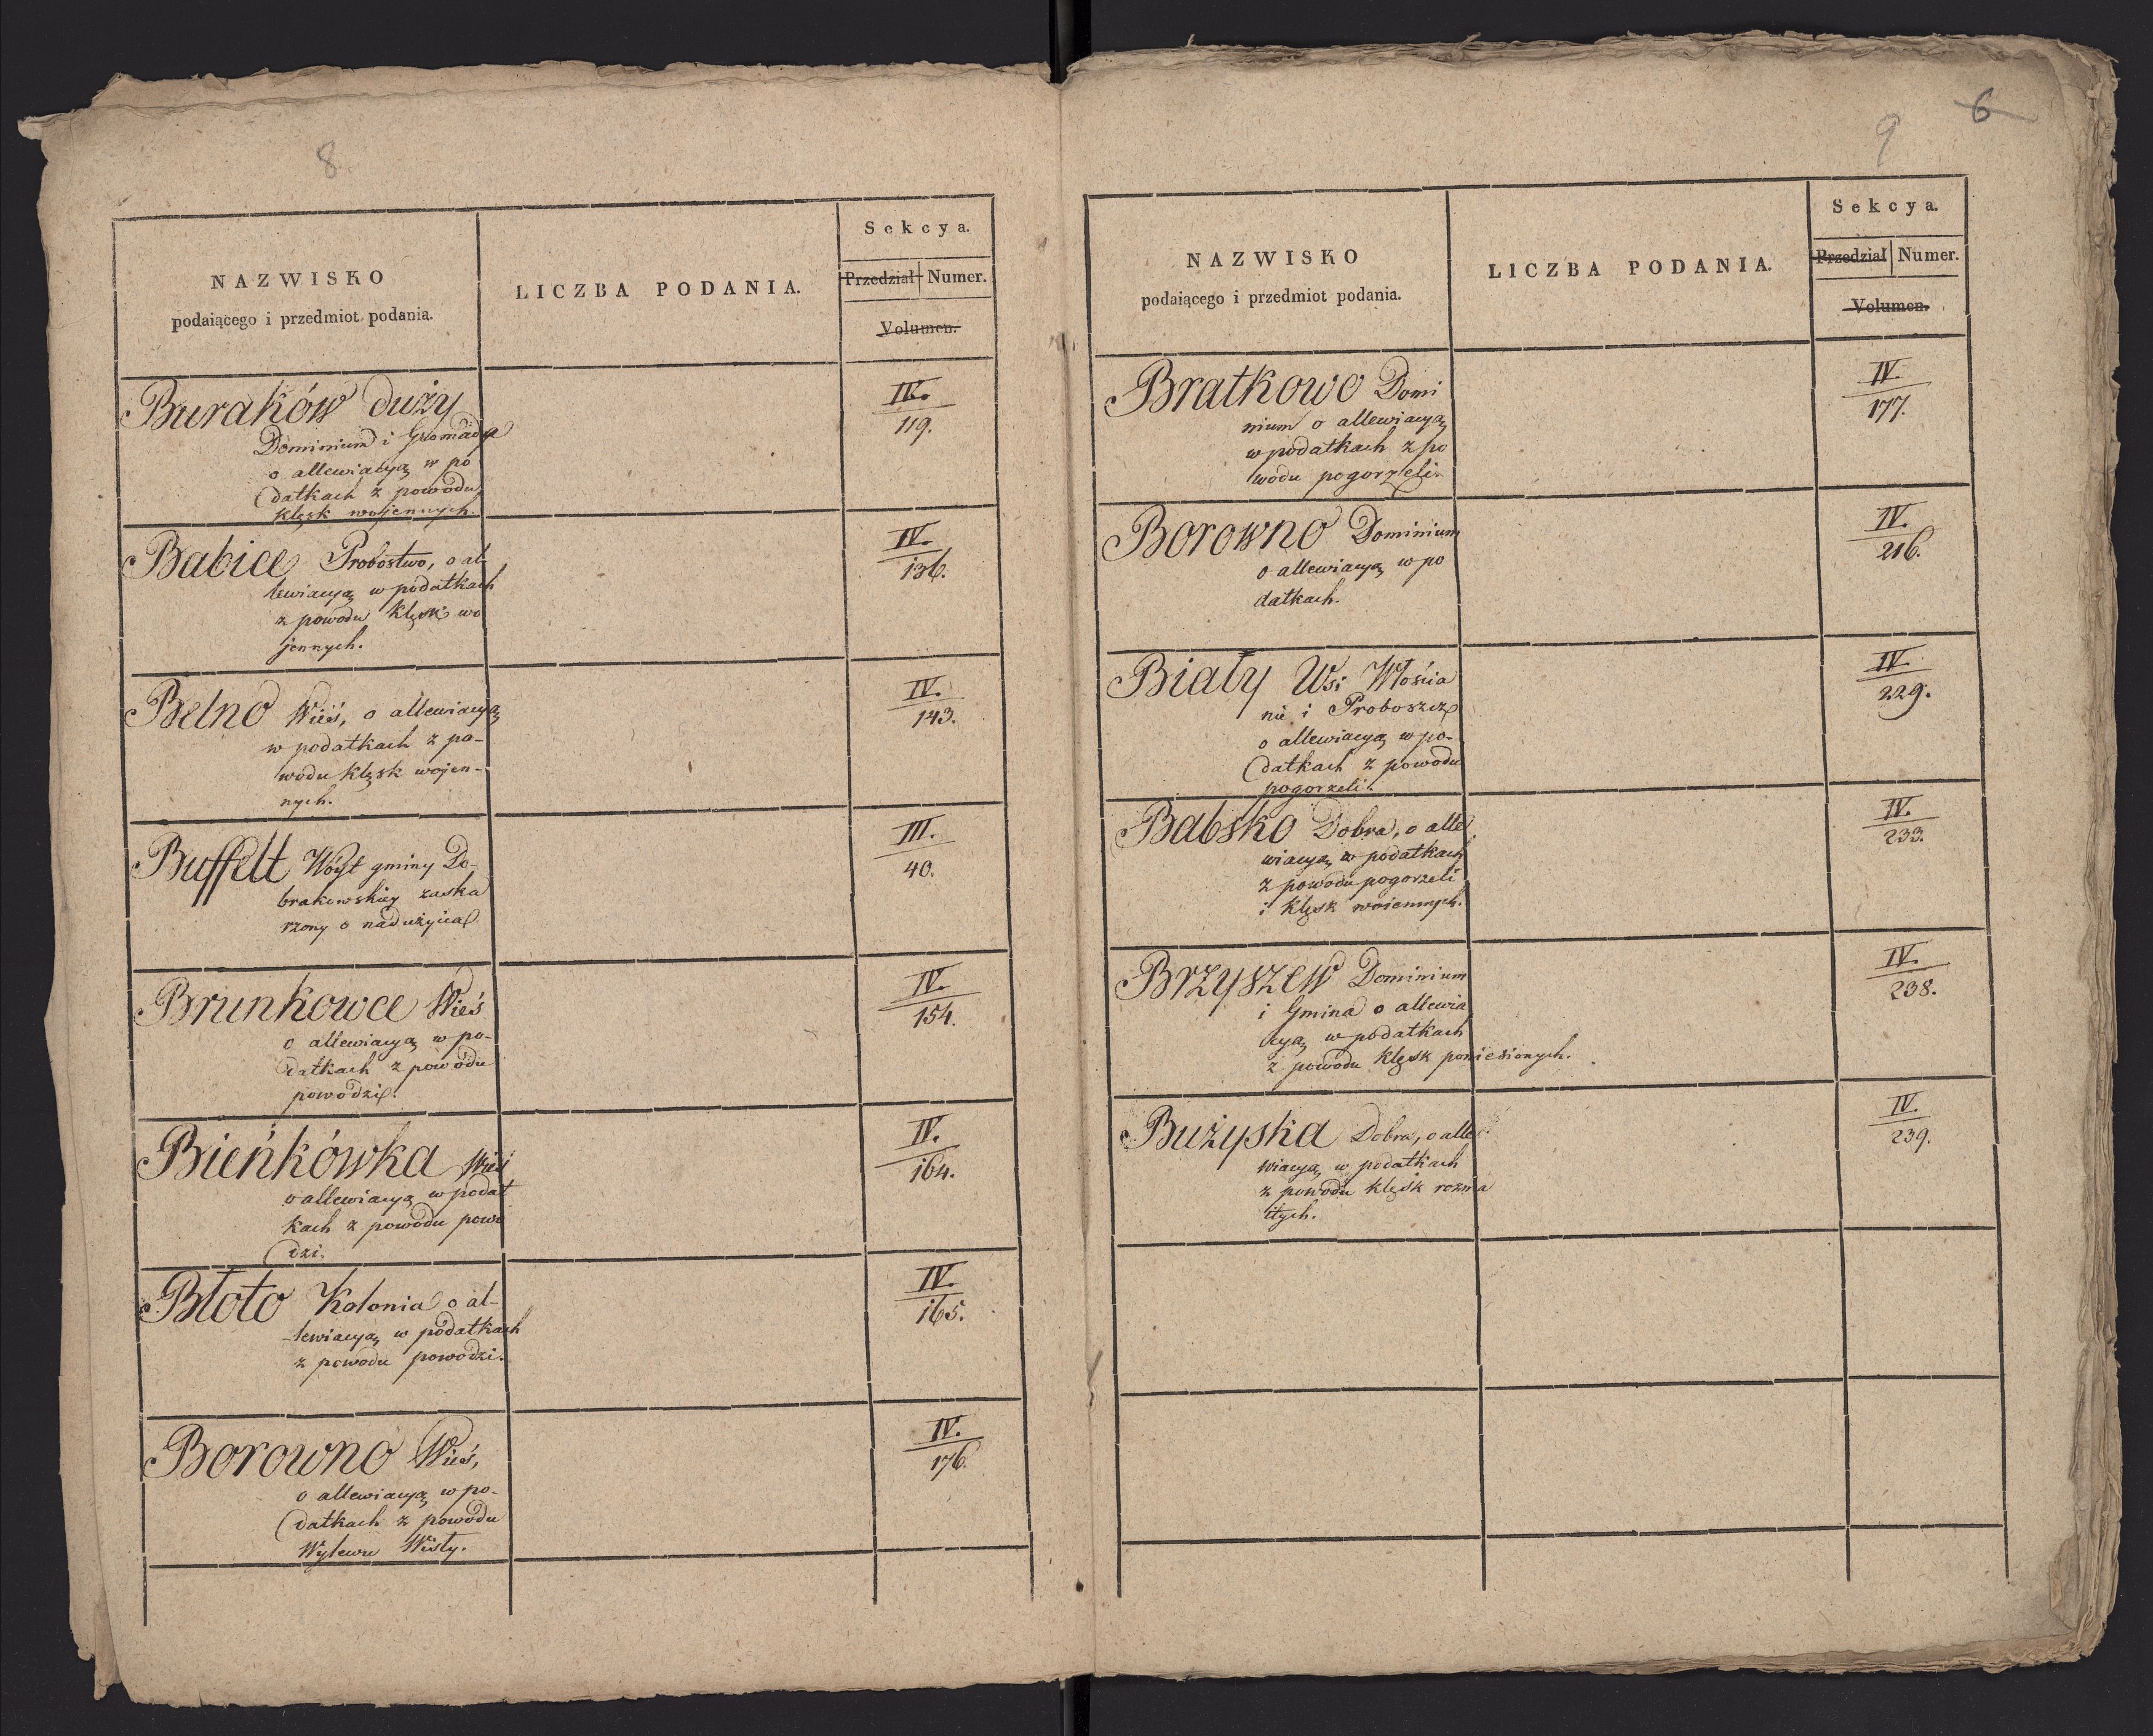 8
NAZWISKO
podaiącego i przedmiot podania.
LICZBA PODANIA.
Sekcya.
Przedział Numer.
Volumen.
Buraków duży
Dominium i Gromada
o allewiacyą w po
datkach z powodu
klęsk wojennych.
IV.
119.
Babice Probostwo, o al-
lewiacyą w podatkach
z powodu klęsk wo
jennych.
IV.
136.
Belno Wieś, o allewiacyą
w podatkach z po-
wodu klęsk wojen-
nych.
IV.
143.
Buffelt Wóyt gminy Do-
brakowskiey zaska
rzony o nadużycia
III.
40.
Brunkowce Wieś
o allewiacyą w po-
datkach z powodu
powodzi.
IV.
154.
Bieńkówka Wieś
o allewiacyą w podat
kach z powodu powo
dzi.
IV.
164.
Błoto Kolonia o al-
lewiacyą w podatkach
z powodu powodzi.
IV.
165.
Borowno Wieś,
o allewiacyą w po-
datkach z powodu
Wylewu Wisły.
IV.
176.
9 6
NAZWISKO
podaiącego i przedmiot podania.
LICZBA PODANIA.
Sekcya.
Przedział Numer.
Volumen.
Bratkowo Domi
nium o allewiacyą
w podatkach z po
wodu pogorzeli.
IV.
177.
Borowno Dominium
o allewiacyą w po
datkach.
IV.
216.
Biały Wsi Włościa
nie i Proboszcz
o allewiacyą w po-
datkach z powodu
pogorzeli.
IV.
229.
Babsko Dobra, o alle
wiacyą w podatkach
z powodu pogorzeli
i klęsk woiennych.
IV.
233.
Brzyszew Dominium
i Gmina o allewia
cyą w podatkach
z powodu klęsk poniesionych.
IV.
238.
Bużyska Dobra, o alle
wiacyą w podatkach
z powodu klęsk rozma
itych.
IV.
239.